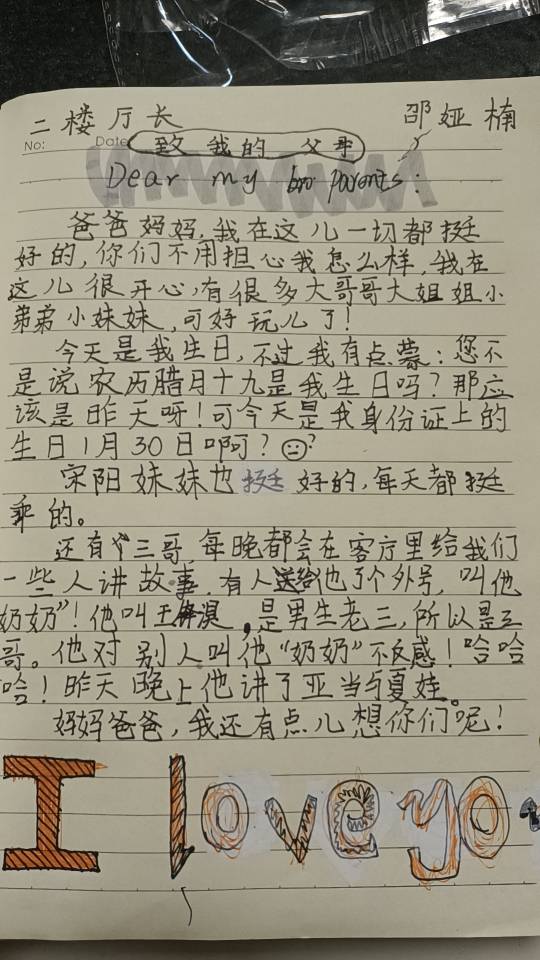 二楼厅长 邵娅楠
No: Date 致我的父母
Dear my parents:
爸爸妈妈,我在这儿一切都挺
好的,你们不用担心我怎么样,我在
这儿很开心,有很多大哥哥大姐姐小
弟弟小妹妹,可好玩儿了!
今天是我生日,不过我有点蒙:您不
是说农历腊月十九是我生日吗?那应
该是昨天呀!可今天是我身份证上的
生日1月30日啊?
宋阳妹妹也挺好的,每天都挺
乖的。
还有个三哥,每晚都会在客厅里给我们
一些人讲故事,有人送给他了个外号,叫他
奶奶”!他叫王淏,是男生老三,所以是三
哥。他对别人叫他“奶奶”不反感!哈哈
哈!昨天晚上他讲了亚当与夏娃。
妈妈爸爸,我还有点儿想你们呢!
I love yo